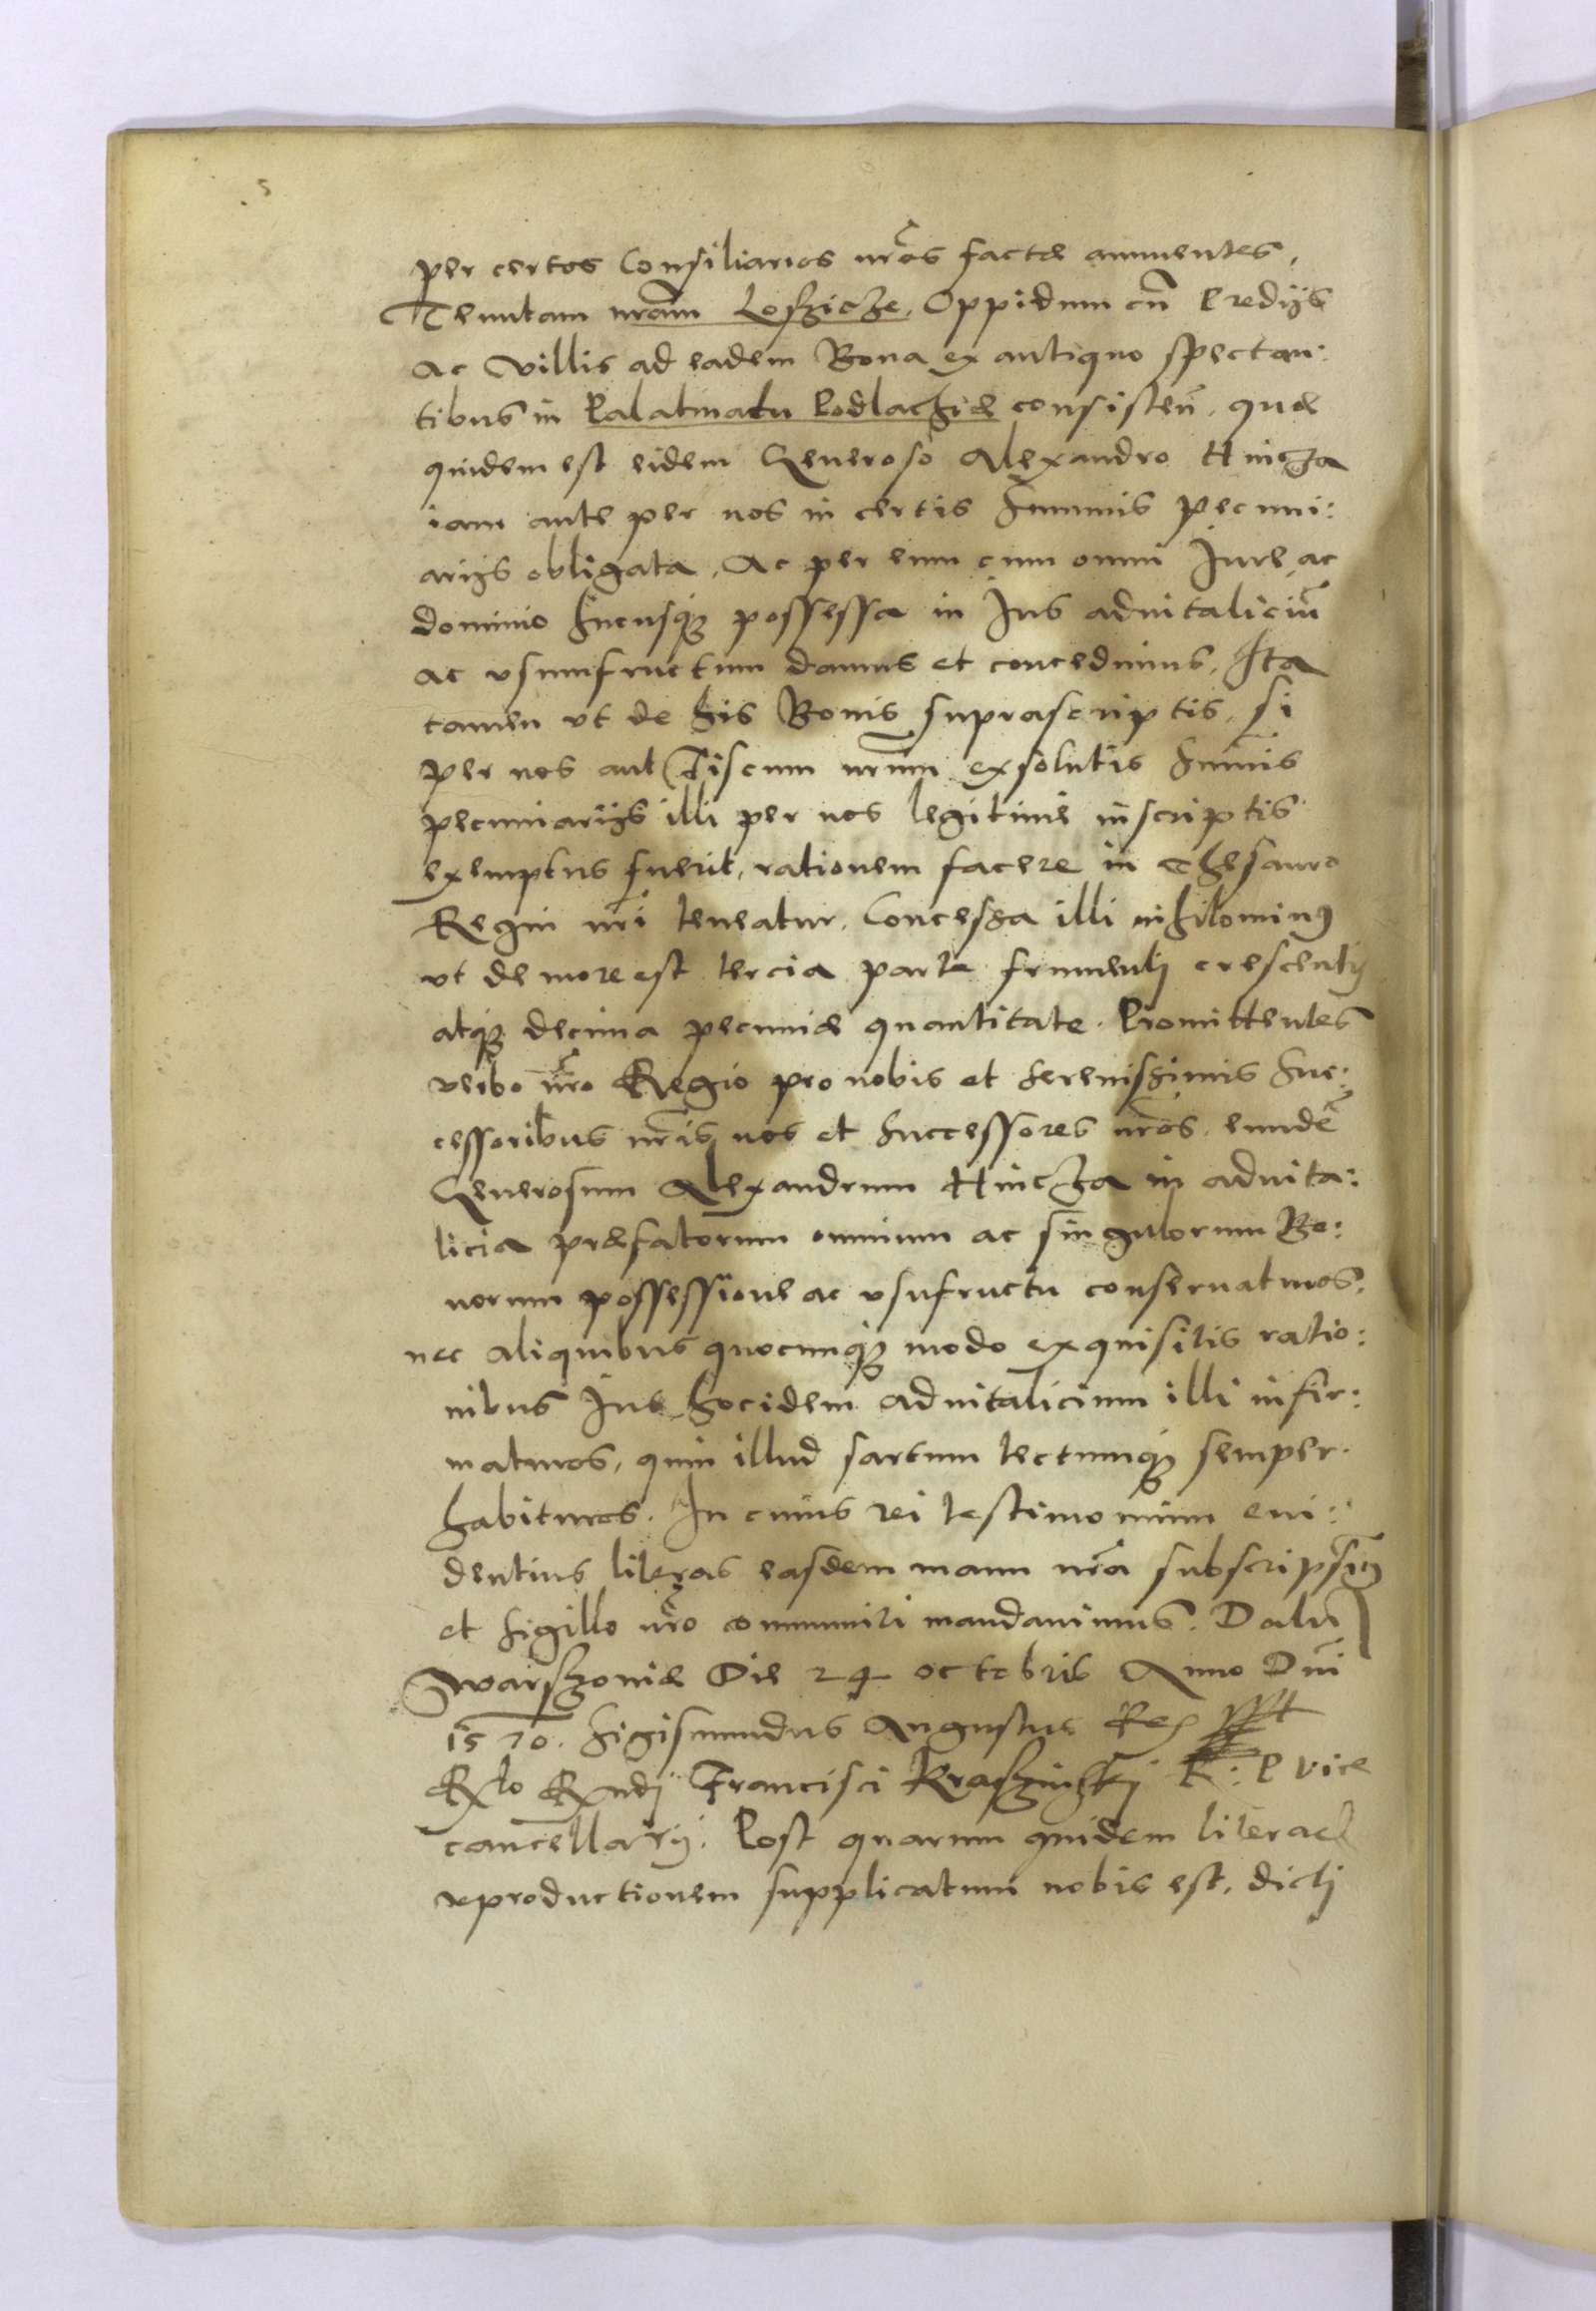 per certos Consiliarios nr̃os factæ annuentes,
Tenutam nr̃am Loszicze, Oppidum cũ Predijs
ac Villis ad eadem Bona ex antiquo spectan:
tibus in Palatinatu Podlachiæ consisteñ. quæ
quidem est eidem Generoso Alexandro Hincza
iam ante per nos in certis summis pecuni:
arijs obligata, Ac per eum cum omni Iure, ac
dominio hucusq; possessa in Ius aduitaliciũ
ac vsumfructum damus et concedimus, Ita
tamen vt de his Bonis suprascriptis, si
per nos aut Fiscum nr̃um exsolutis sum̃is
pecuniarijs illi per nos legitime inscriptis
exemptus fuerit, rationem facere in Thesauro
Regni nr̃i teneatur, Concessa illi nihilominus
vt de more est tercia parte frumenti crescentis
atq; decima pecuniæ quantitate. Promittentes
verbo nr̃o Regio pro nobis et serenissimis suc:
cessoribus nr̃is, nos et successores nr̃os, eundẽ
Generosum Alexandrum Hincza in aduita:
licia præfatorum omnium ac singulorum Bo:
norum possessione ac vsufructu conseruaturos,
nec aliquibus quocunq; modo exquisitis ratio:
nibus Ius hocidem aduitalicium illi infir:
maturos, quin illud sartum tectumq; semper
habituros. In cuius rei testimonium eui:
dentius literas easdem manu nr̃a subscripsim9
et sigillo nr̃o communiri mandauimus. Datũ
Warszouiæ Die 24 octobris Anno Dñi
1570. Sigismundus Augustus Rex
Rx̃lo Rx̃ndj Francisci Krasinskj R: P vice
cancellarij. Post quarum quidem literar̃
reproductionem supplicatum nobis est, dicti